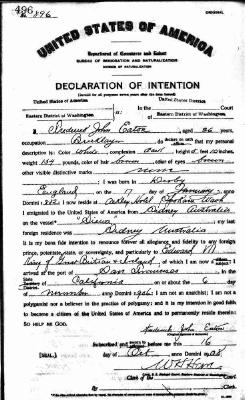 496
896
ORIGINAL
UNITED STATES OF AMERICA
Department of Commerce and Labor
BUREAU OF IMMIGRATION AND NATURALIZATION
DIVISION OF NATURALIZATION
DECLARATION OF INTENTION
(Invalid for all purposes seven years after the date hereof)
United States of America
United States District
Eastern District of Washington
In the Court
Eastern District of Washington
I, Frederick John Eaton, aged 26 years,
occupation Bricklayer, do declare on oath that my personal
description is: Color white, complexion dark, height 5 feet inches,
weight 159 pounds, color of hair brown, color of eyes brown
other visible distinctive marks none
I was born in Derby
England on the 17 day of January, anno
Domini; I now reside at Hotel Spokane Wash
I emigrated to the United States of America from Sidney Australia
on the vessel; my last
foreign residence was Sidney Australia
It is my bona fide intention to renounce forever all allegiance and fidelity to any foreign
prince, potentate, state, or sovereignty, and particularly to Edward VII
King of Great Britain and Ireland, of which I am now a subject; I
arrived at the port of San Francisco, in the
State of California on or about the 6 day
of; I am not an anarchist; I am not a
polygamist nor a believer in the practice of polygamy; and it is my intention in good faith
to become a citizen of the United States of America and to permanently reside therein:
SO HELP ME GOD.
Frederick John Eaton
Subscribed and sworn to before me this 16
[SEAL.] day of Oct, anno Domini 1908
W H Hare
Clerk